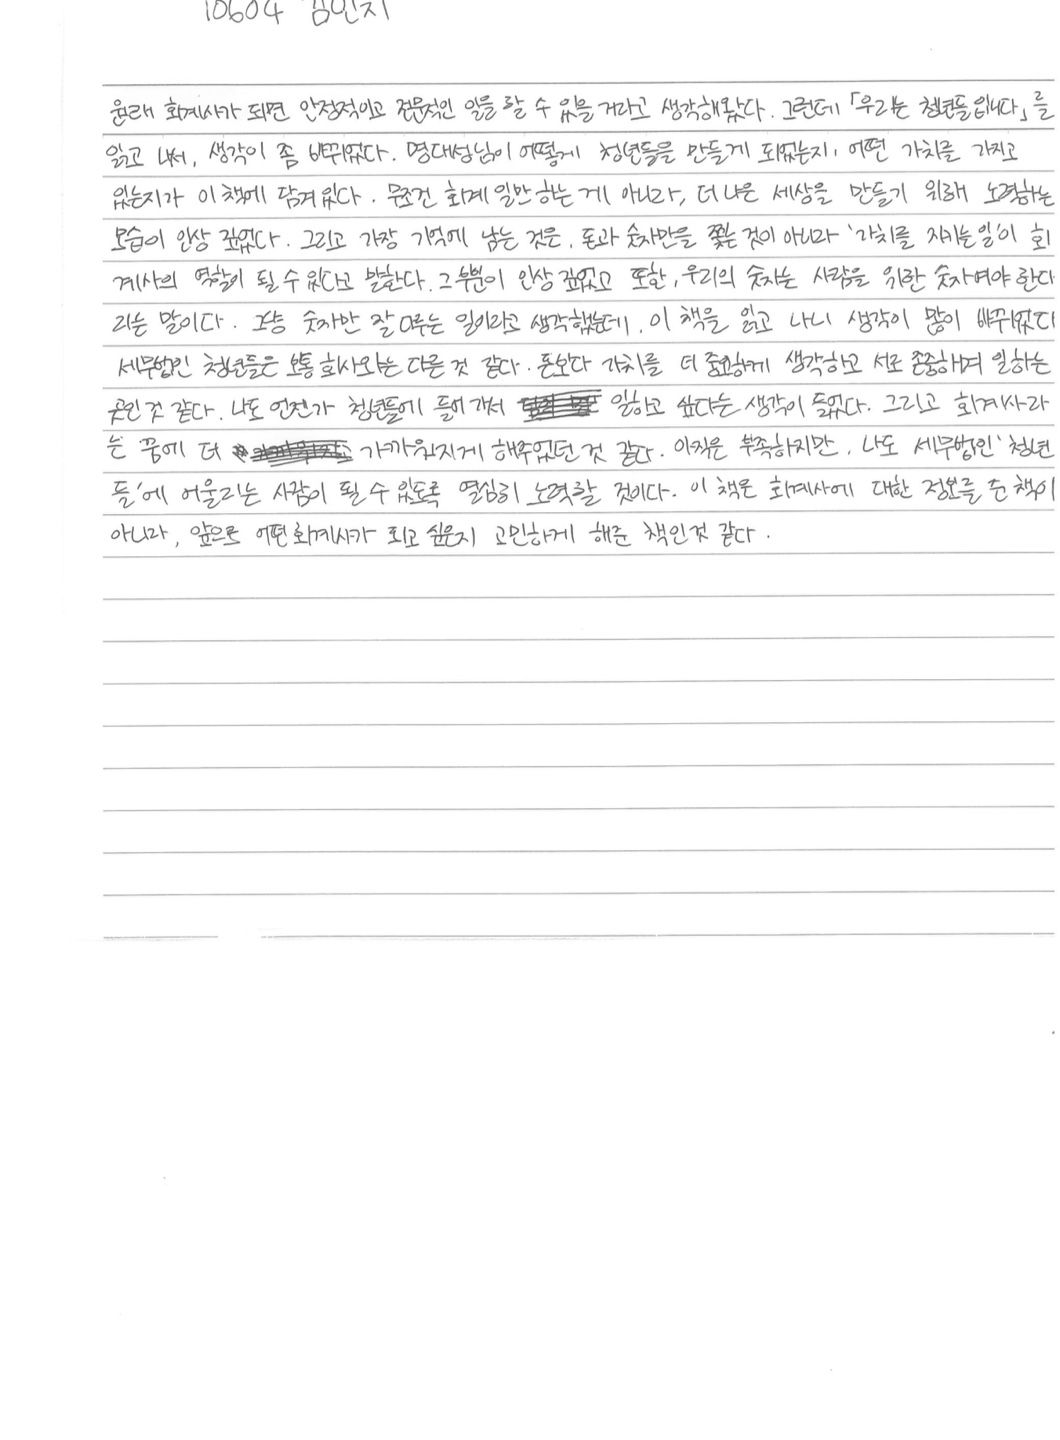 10604 김민지
원래 회계사가 되면 안정적이고 전문적인 일을 할 수 있을 거라고 생각해왔다. 그런데 「우리는 청년들입니다」를
읽고 나서, 생각이 좀 바뀌었다. 명대성님이 어떻게 청년들을 만들게 되었는지, 어떤 가치를 가지고
있는지가 이 책에 담겨있다. 무조건 회계 일만 하는 게 아니라, 더 나은 세상을 만들기 위해 노력하는
모습이 인상 깊었다. 그리고 가장 기억에 남는 것은, 돈과 숫자만을 쫓는 것이 아니라 '가치를 지키는 일'이 회
계사의 역할이 될 수 있다고 말한다. 그 부분이 인상 깊었고 또한, 우리의 숫자는 사람을 위한 숫자여야 한다
라는 말이다. 그냥 숫자만 잘 다루는 일이라고 생각했는데, 이 책을 읽고 나니 생각이 많이 바뀌었다
세무법인 청년들은 보통 회사와는 다른 것 같다. 돈보다 가치를 더 중요하게 생각하고 서로 존중하며 일하는
곳인 것 같다. 나도 언젠가 청년들에 들어가서 일하고 싶다는 생각이 들었다. 그리고 회계사라
는 꿈에 더 가까워지게 해주었던 것 같다. 아직은 부족하지만, 나도 세무법인 '청년
들'에 어울리는 사람이 될 수 있도록 열심히 노력할 것이다. 이 책은 회계사에 대한 정보를 준 책이
아니라, 앞으로 어떤 회계사가 되고 싶은지 고민하게 해준 책인 것 같다.